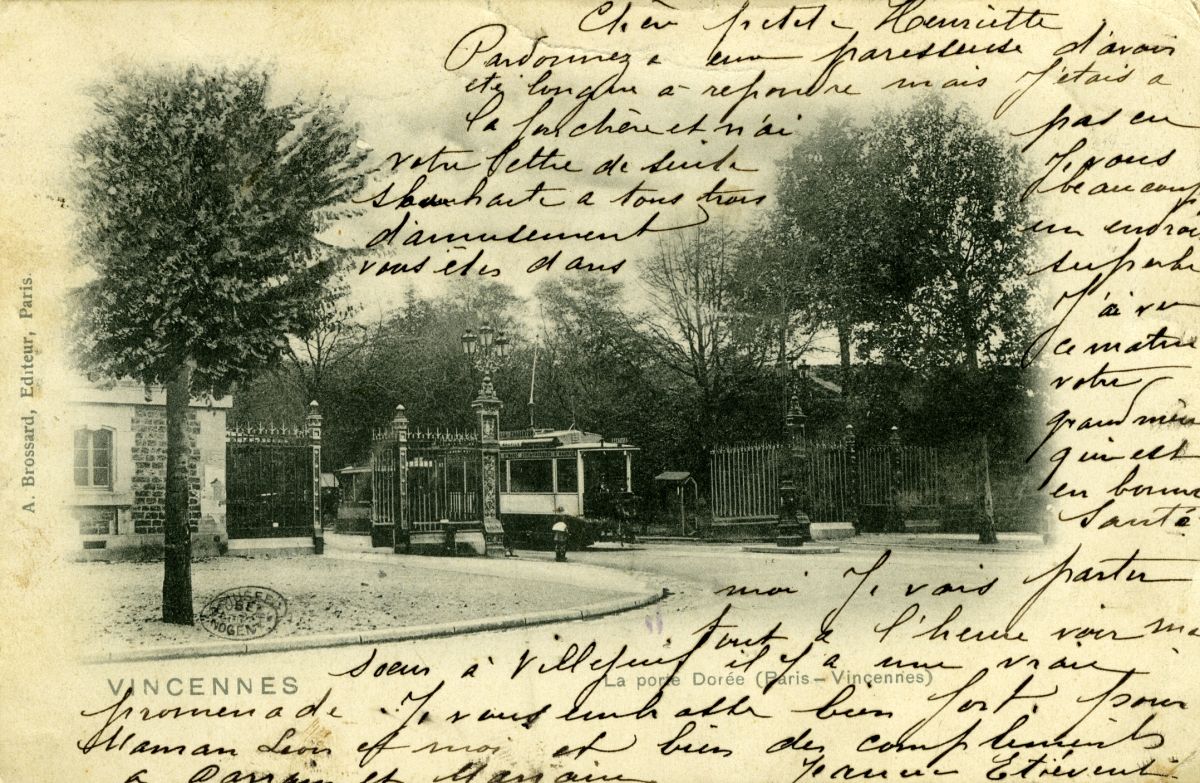 Chère petite Henriette
Pardonnez a une paresseuse d'avoir
été longue à repondre mais J'étais a
la fourchère et n'ai pas eu
votre lettre de suite Je vous
souhaite a tous trois beaucoup
d'amusement un endroi
vous êtes dans superbe
J'ai vu
ce matin
votre
grand mère
qui est
en bonne
Santé
moi Je vais partir
tout a l'heure voir ma
soeur à Villejuif il y a une vraie
promenade. Je vous embrasse bien fort pour
Maman Léon et moi et bien des compliments
a Parrain et Marraine Jeanne Etiévent
A. Brossard, Editeur, Paris.
MUSEE
DE
NOGENT
VINCENNES
La porte Dorée (Paris - Vincennes)